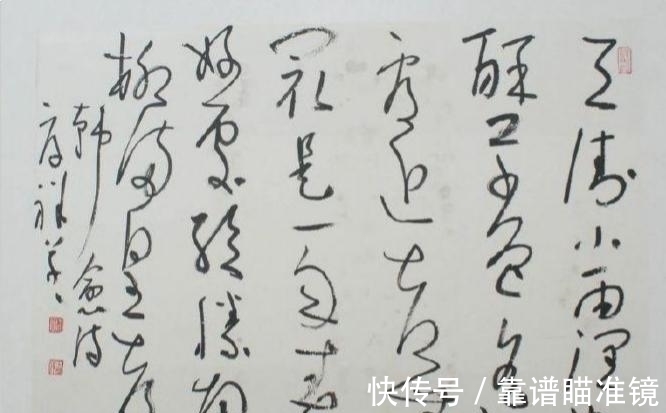 天街小雨潤
酥草色遥
看近却
最是一年春
好處絕勝烟
柳滿皇都
韓愈詩
快传号 / 靠谱瞄准镜